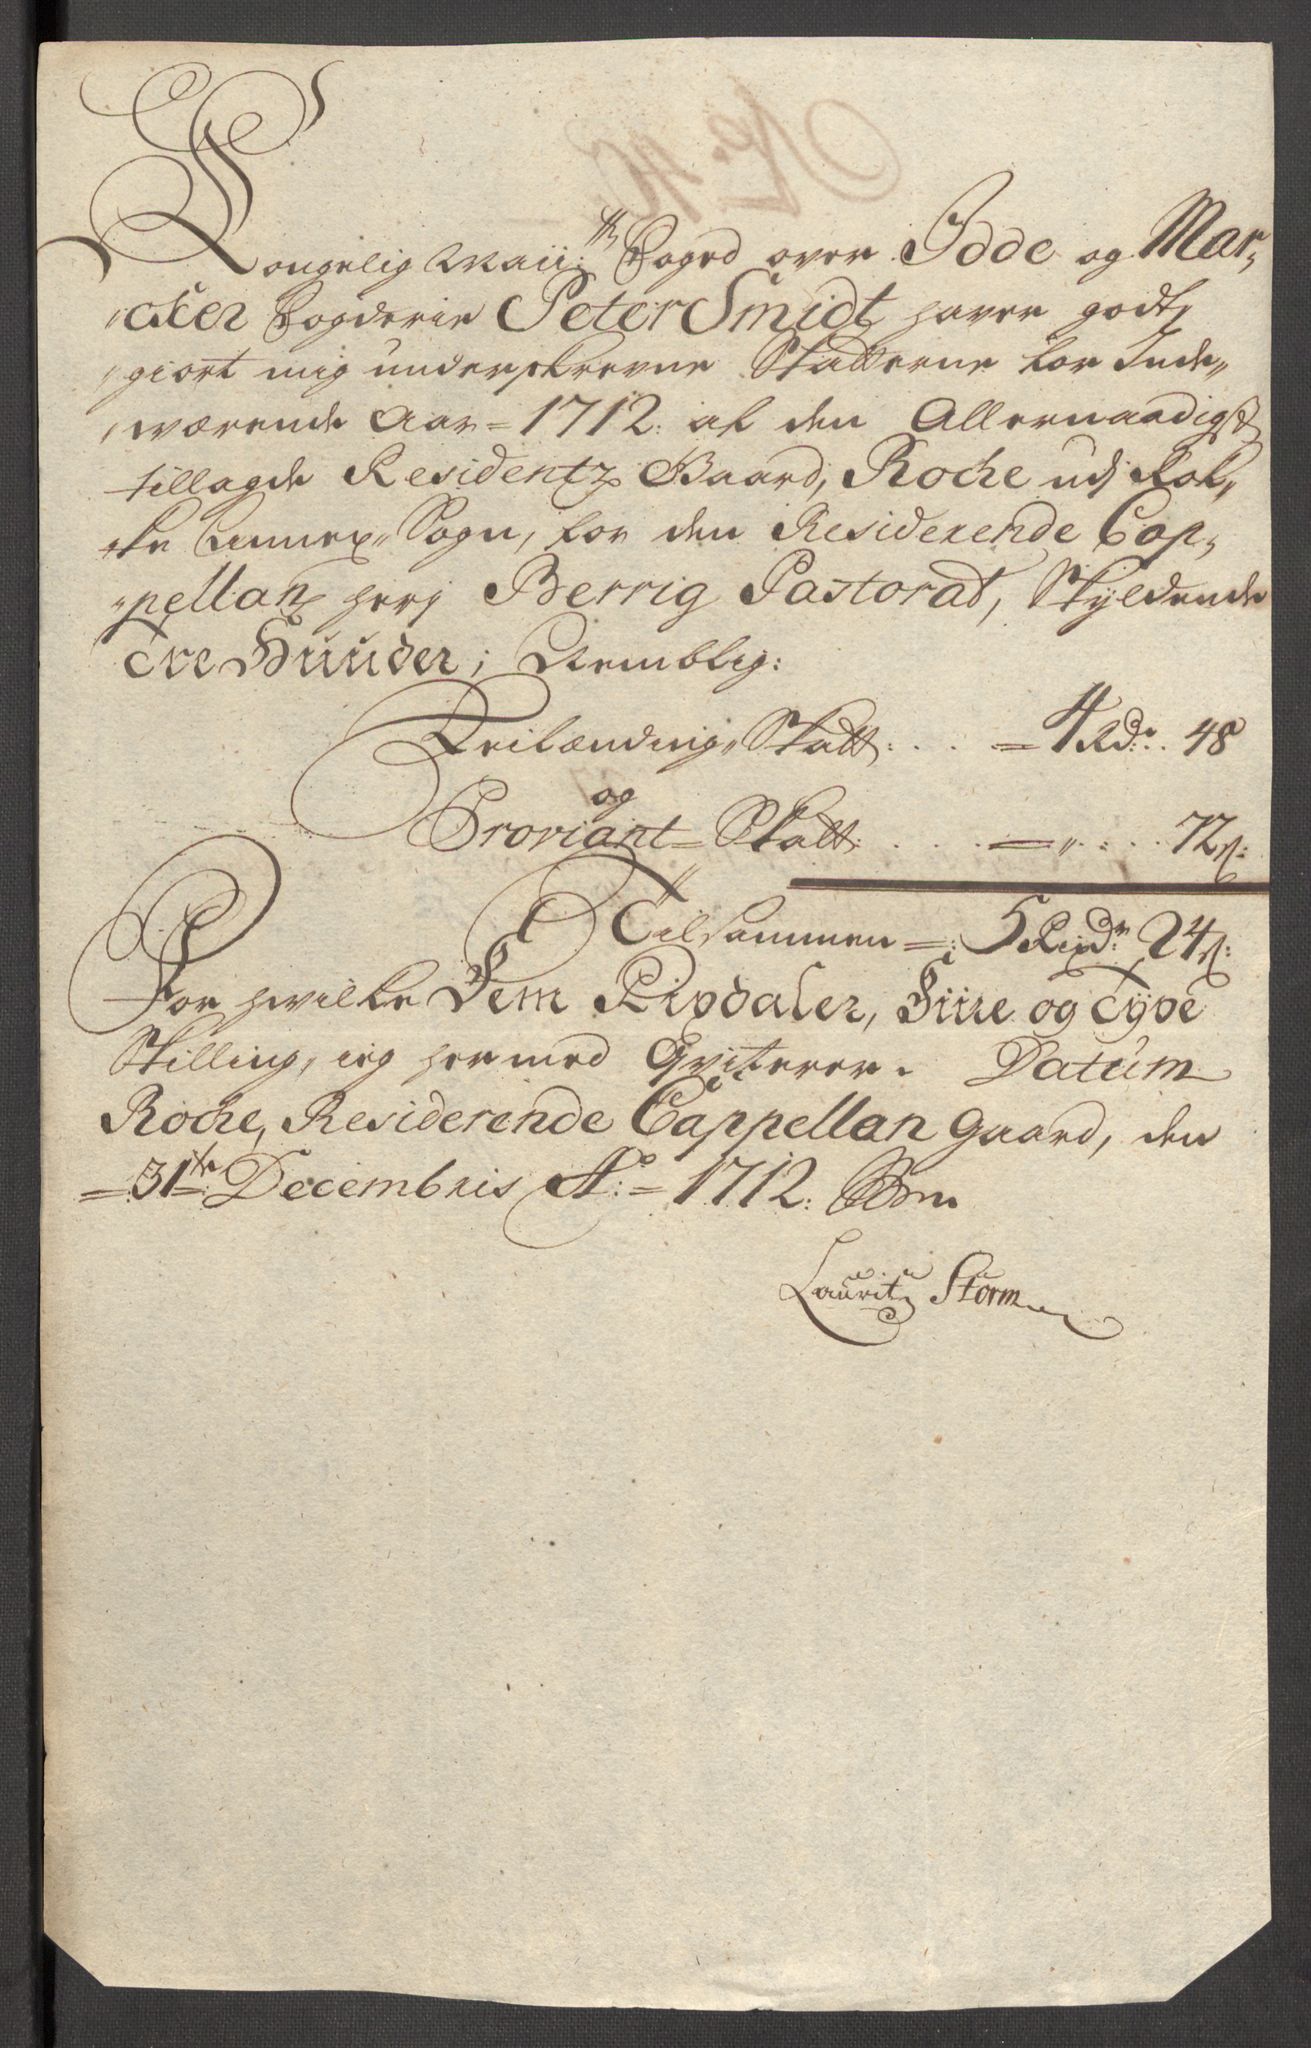 Kongelig Maii:ttz Foged over Idde og Mar„
„cker Fogderie Peter Smidt haver godt„
„giort mig underskrevne Skatterne for Inde„
„værende Aar = 1712: af den Allernaadigst
tillagde Residentz Gaard, Rocke udj Rok„
„ke Annex„ Sogn, for den Residerende Cap„
„pellan herj Berrig Pastorat, Skyldende
Tre Huuder; Nemblig:
Leilænding„ Skatt: . . . = 4 Rdr: . 48
og
Proviant = Skatt: . . . . = „ . : . . 72 ß:
Tilsammen =: 5 Rixdr: 24 ß:
For hvilke Fem Rixdaler, Fiire og Tyve
Skilling, ieg hermed Qviterer. Datum
Rocke, Residerende Cappellan gaard, den
= 31te: Decembris Ao: = 1712:
Lauritz Storm